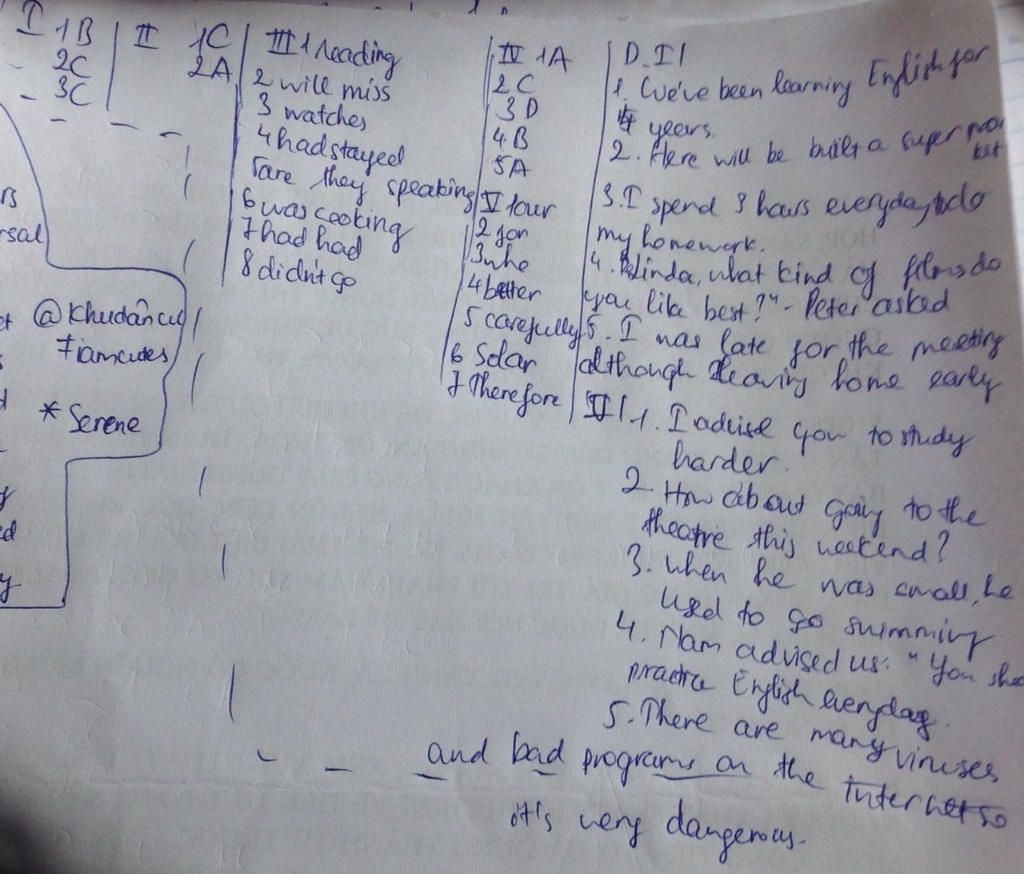 I 1B
2C
3C
II 1C
2A
III 1 reading
2 will miss
3 watches
4 had stayed
5 are they speaking
6 was cooking
7 had had
8 didn't go
IV 1A
2C
3D
4B
5A
V 1 our
2 for
3 who
4 better
5 carefully
6 Solar
7 Therefore
D. I/
1. We've been learning English for
4 years.
2. Here will be built a super mar
ket
3. I spend 3 hours everyday to do
my homework.
4. "Linda, what kind of films do
you like best?" - Peter asked
5. I was late for the meeting
although leaving home early
II/ 1. I advise you to study
harder.
2. How about going to the
theatre this weekend?
3. When he was small, he
used to go swimming
4. Nam advised us: "You sho
practice English everyday.
5. There are many viruses
and bad programs on the Internet so
it's very dangerous.
rs
rsal
@Khudâncu
7iamcutes
* Serene
ed
y